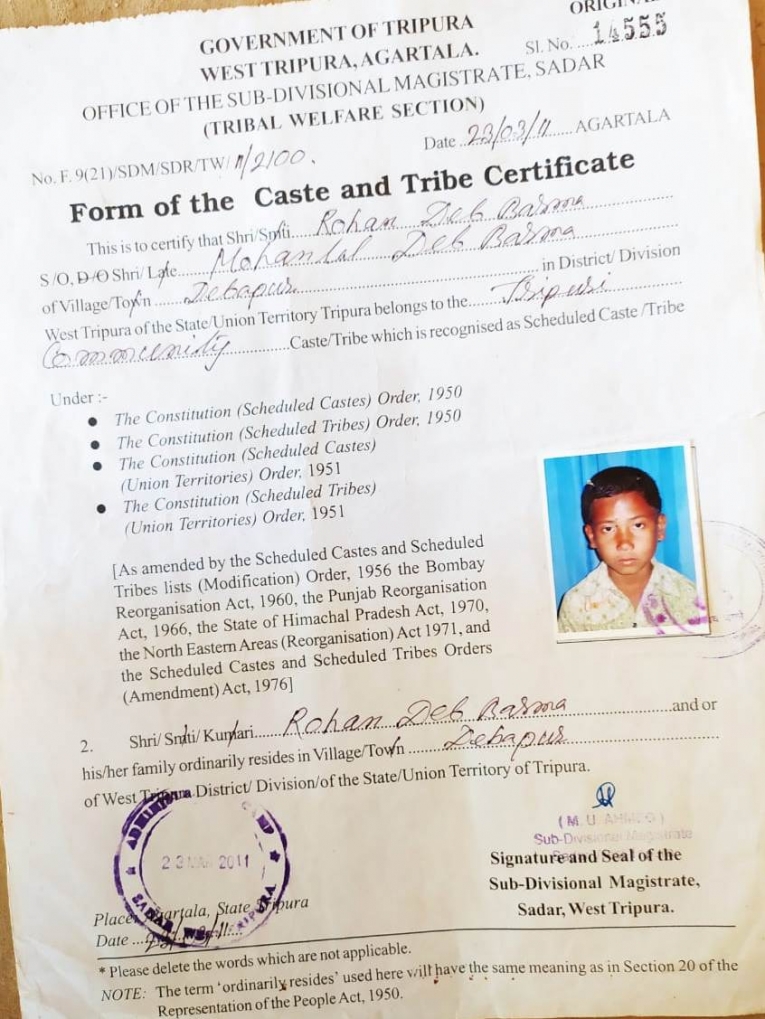 ORIGINAL
GOVERNMENT OF TRIPURA
WEST TRIPURA, AGARTALA. Sl. No. ....14555
OFFICE OF THE SUB-DIVISIONAL MAGISTRATE, SADAR
(TRIBAL WELFARE SECTION)
No. F. 9(21)/SDM/SDR/TW/11/2100. Date ..23/03/11.... AGARTALA
Form of the Caste and Tribe Certificate
This is to certify that Shri/Smti.... Rohan Deb Barma
S/O, D/O Shri/ Late...... Mohan lal Deb Barma
of Village/Town .... Debapur ........ in District/ Division
West Tripura of the State/Union Territory Tripura belongs to the.... Tripuri
Community ..........Caste/Tribe which is recognised as Scheduled Caste /Tribe
Under :-
● The Constitution (Scheduled Castes) Order, 1950
● The Constitution (Scheduled Tribes) Order, 1950
● The Constitution (Scheduled Castes)
(Union Territories) Order, 1951
● The Constitution (Scheduled Tribes)
(Union Territories) Order, 1951
[As amended by the Scheduled Castes and Scheduled
Tribes lists (Modification) Order, 1956 the Bombay
Reorganisation Act, 1960, the Punjab Reorganisation
Act, 1966, the State of Himachal Pradesh Act, 1970,
the North Eastern Areas (Reorganisation) Act 1971, and
the Scheduled Castes and Scheduled Tribes Orders
(Amendment) Act, 1976]
2. Shri/ Smti/ Kumari...... Rohan Deb Barma ........and or
his/her family ordinarily resides in Village/Town ...... Debapur
of West Tripura District/ Division/of the State/Union Territory of Tripura.
(M. U. AHMED)
Sub-Divisional Magistrate
Signature and Seal of the
Sub-Divisional Magistrate,
Sadar, West Tripura.
23 MAR 2011
SADAR WEST TRIPURA
Place: Agartala, State Tripura
Date ...23/3/11....
* Please delete the words which are not applicable.
NOTE: The term 'ordinarily resides' used here will have the same meaning as in Section 20 of the
Representation of the People Act, 1950.